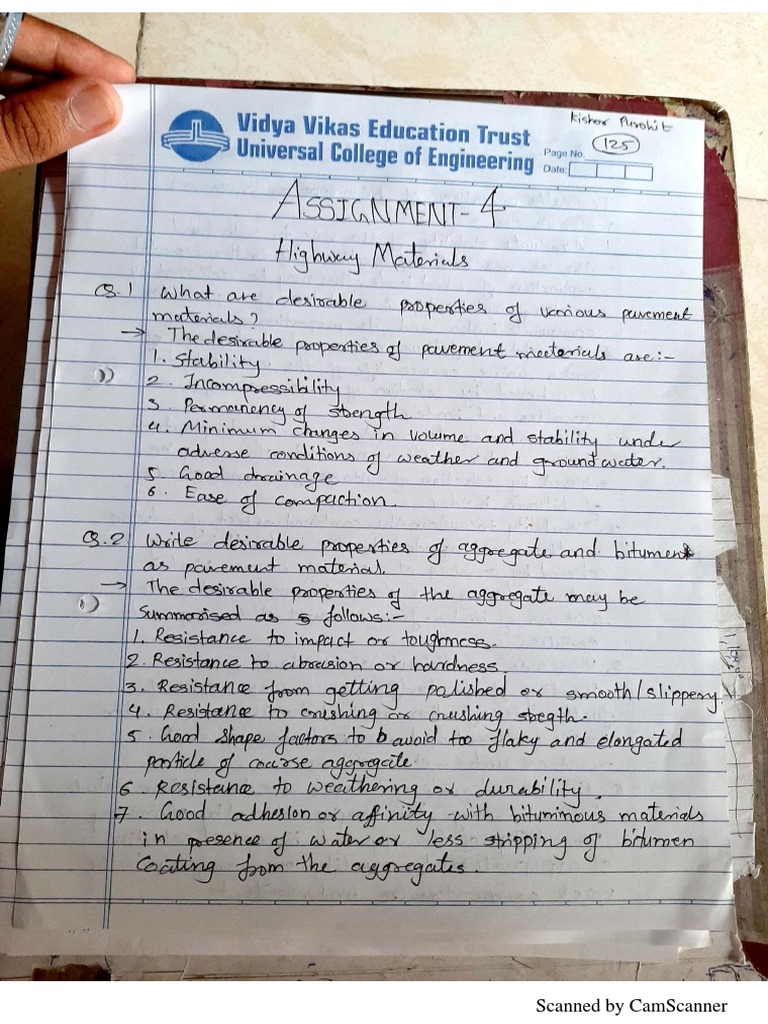 Kishor Purohit
Vidya Vikas Education Trust
Universal College of Engineering
Page No. 125
Date:
ASSIGNMENT-4
Highway Materials
Q.1 What are desirable properties of various pavement
materials?
→ The desirable properties of pavement materials are:-
1. Stability.
2. Incompressibility
3. Permanency of strength
4. Minimum changes in volume and stability under
adverse conditions of weather and ground water.
5. Good drainage
6. Ease of compaction.
Q.2 Write desirable properties of aggregate and bitumen
as pavement material.
→ The desirable properties of the aggregate may be
Summarised as follows:-
1. Resistance to impact or toughness.
2. Resistance to abrasion or hardness.
3. Resistance from getting polished or smooth/slippery.
4. Resistance to crushing or crushing stregth.
5. Good shape factors to avoid too flaky and elongated
particle of coarse aggregate.
6. Resistance to weathering or durability.
7. Good adhesion or affinity with bituminous materials
in presence of water or less stripping of bitumen
Coating from the aggregates.
Scanned by CamScanner